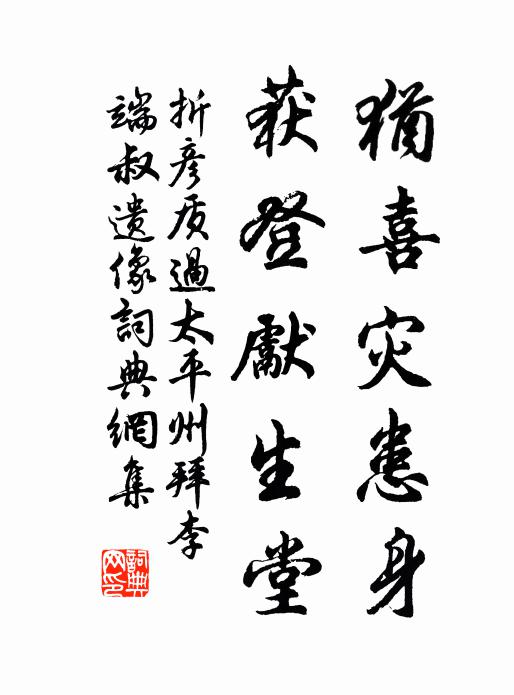 猶喜灾患身
获登獻生堂
折彦质過太平州拜李
端叔遺像詞典網集
詞典網印